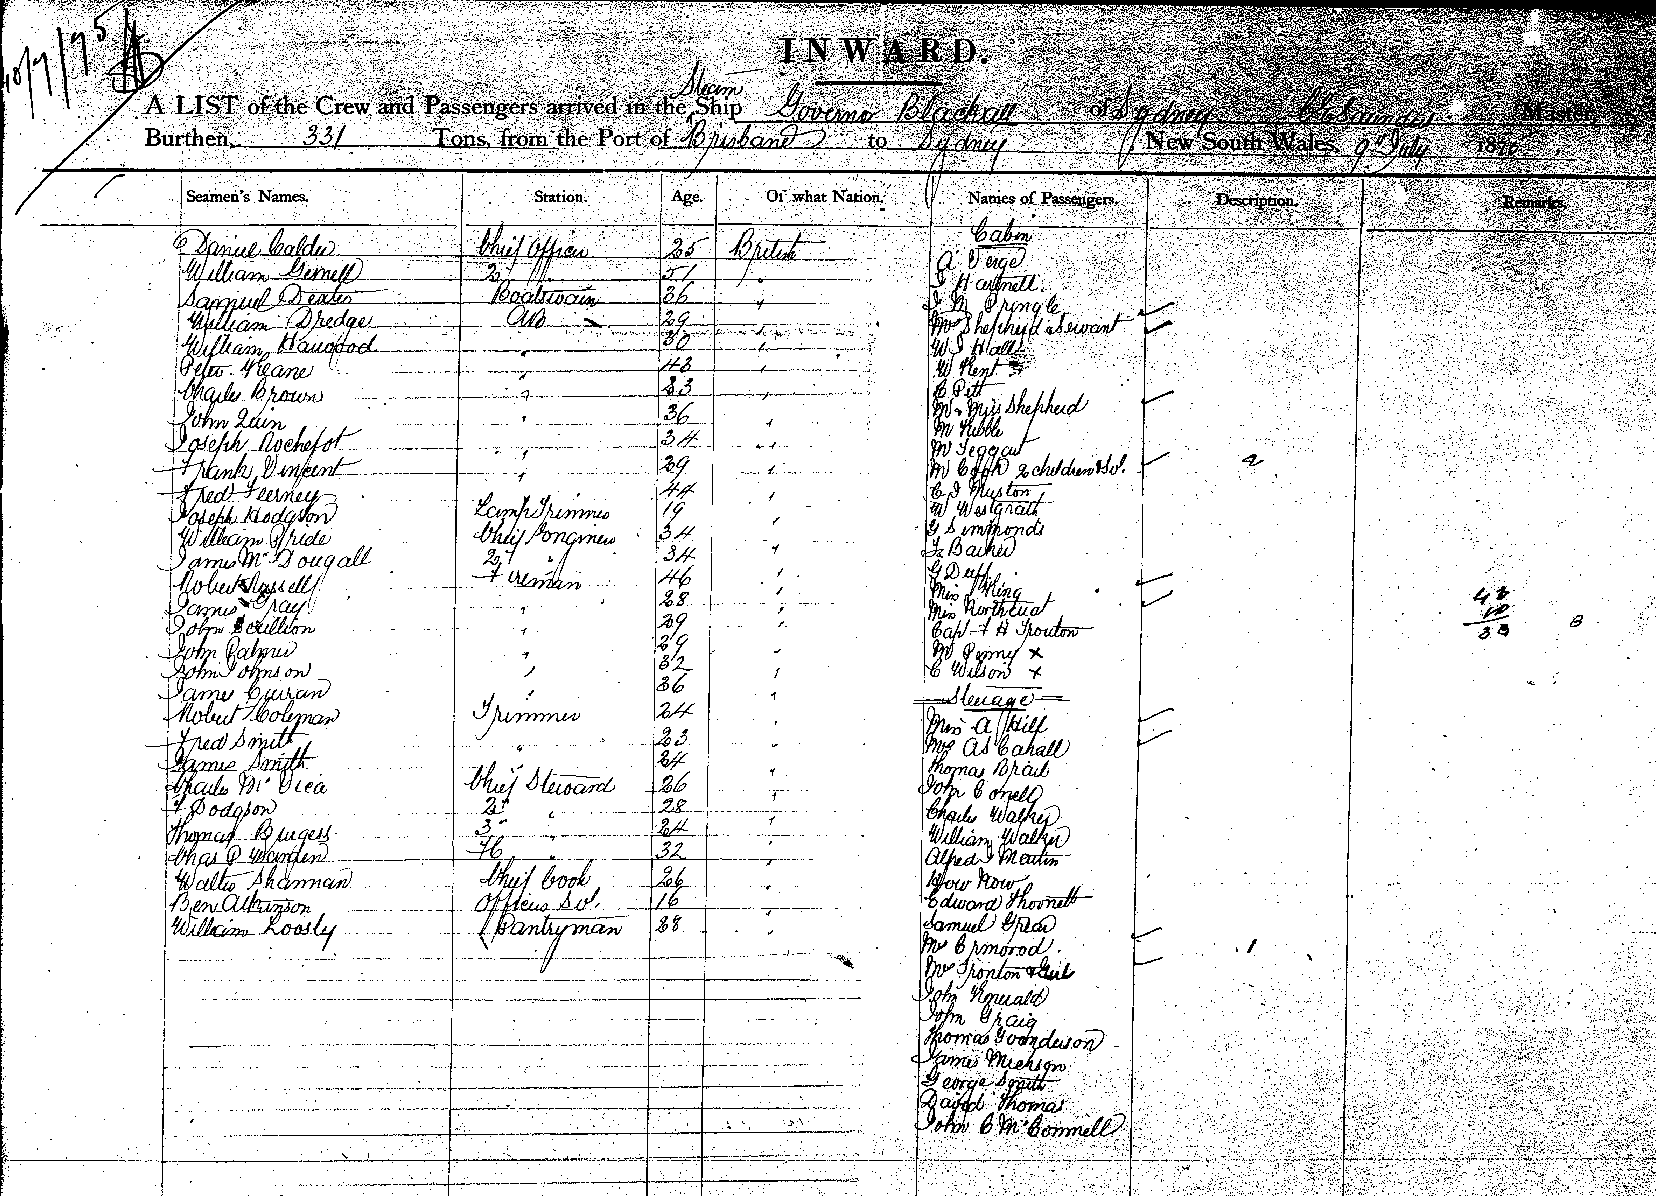 10/7/75
INWARD.
A LIST of the Crew and Passengers arrived in the Steam Ship Governor Blackall of Sydney Master,
Burthen, 331 Tons, from the Port of Brisbane to Sydney New South Wales, 9th July 187
Seamen's Names. Station. Age. Of what Nation. Names of Passengers. Description. Remarks.
Cabin
Daniel Calder Chief Officer 25 British
William 2 " 51 "
Samuel Dexter Boatswain 36 "
William Dredge AB 29 "
William Haugood " 30 "
Peter Keane " 43 "
Charles Brown " 33 "
John Quin " 36 "
Joseph Rochefot " 34 "
Frank Vincent " 29 "
Fred Feerney 44 "
Joseph Hodgson Lamp Trimmer 19 "
William Pride Chief Engineer 34 "
James McDougall 2 " 34 "
Robert Russell Fireman 46 "
James Gray " 28 "
John Scullion " 29 "
John Palmer " 29 "
John Johnson " 32 "
James Curran " 36 "
Robert Coleman Trimmer 24 "
Fred Smith " 23 "
James Smith " 24 "
Charles Mc Chief Steward 26 "
F Dodgson 2 " 28 "
Thomas Burgess 3 " 24 "
Chas P Warden " 32 "
Walter Shannan Chief Cook 26 "
Ben Atkinson Officers St. 16 "
William Loosly Pantryman 28 "
A Verge
J Hartnell.
J M Pringle
Mrs Shepherd & Servant
W J Hall
W Kent
C Pitt
Mr & Miss Shepherd
Mr Kibble
Mr Teggart
Mr Cook 2 children & St. 2
C J Muston
W Westgrath
G Simmonds
F Barker
G Duff
Miss King
Miss Northcuat
Capt F H Trouton
Mr Penny x
C Wilson x
Steerage
Miss A Hill
Mrs As Cahall
Thomas Brail
John Conell
Charles Walker
William Walker
Alfred Martin
How Now
Edward Thornett
Samuel Grear
Mrs Ermorod 1
Mrs Tronton & Girl
John
John Graig
Thomas Goonderson
James
George Smith
David Thomas
John C McConnell
43
10
33 8